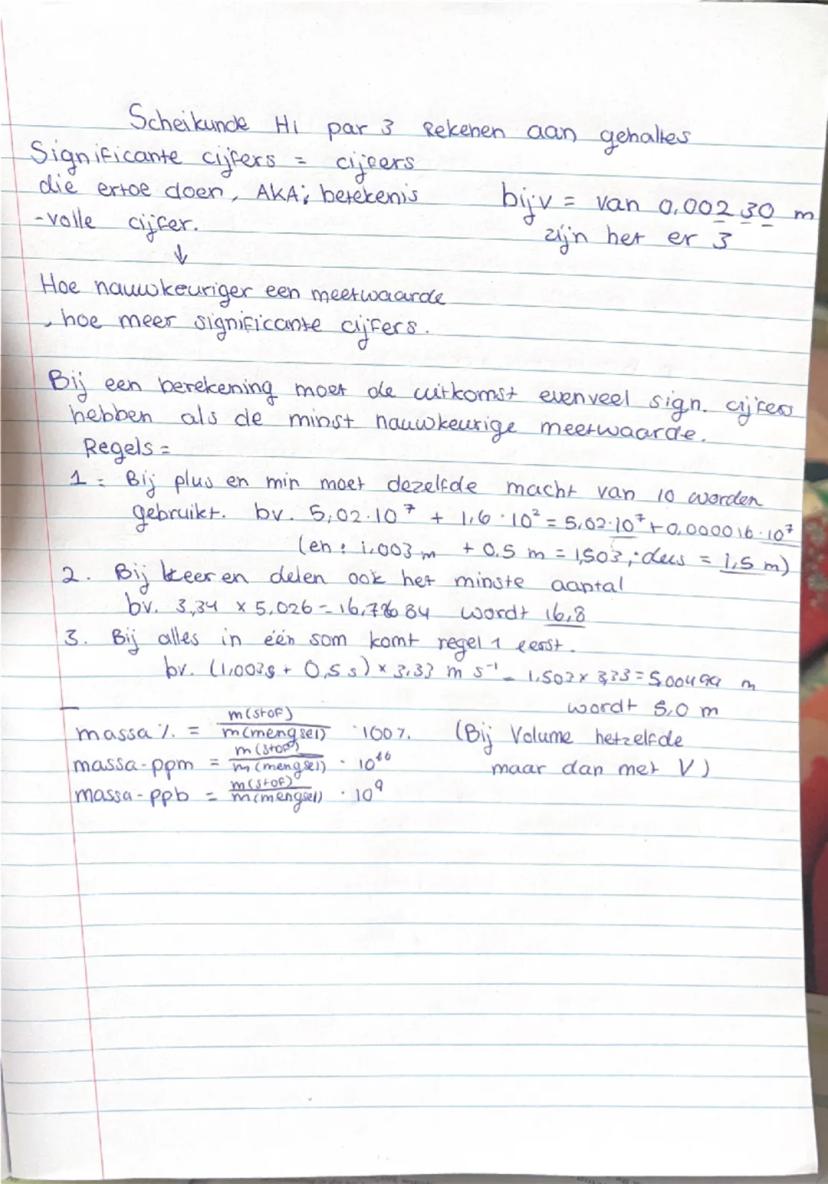 Scheikunde H1 par 3 Rekenen aan gehaltes
Significante cijfers = cijfers
die ertoe doen, AKA; betekenis
-volle cijfer.
bijv = van 0,00230 m
zijn het er 3
↓
Hoe nauwkeuriger een meetwaarde
, hoe meer significante cijfers.
Bij een berekening moet de uitkomst evenveel sign. cijfers
hebben als de minst nauwkeurige meetwaarde.
Regels =
1 = Bij plus en min moet dezelfde macht van 10 worden
gebruikt. bv. 5,02·10⁷ + 1,6·10² = 5,02·10⁷+0,000016·10⁷
(en: 1,003 m + 0,5 m = 1,503; dus = 1,5 m)
2. Bij keer en delen ook het minste aantal
bv. 3,34 × 5,026 = 16,78684 wordt 16,8
3. Bij alles in één som komt regel 1 eerst.
bv. (1,002s + 0,5 s) × 3,33 m s⁻¹ = 1,502 × 3,33 = 5,00499 m
wordt 5,0 m
massa % = m(stof) / m(mengsel) · 100% (Bij Volume hetzelfde
massa-ppm = m(stof) / m(mengsel) · 10⁶ maar dan met V)
massa-ppb = m(stof) / m(mengsel) · 10⁹